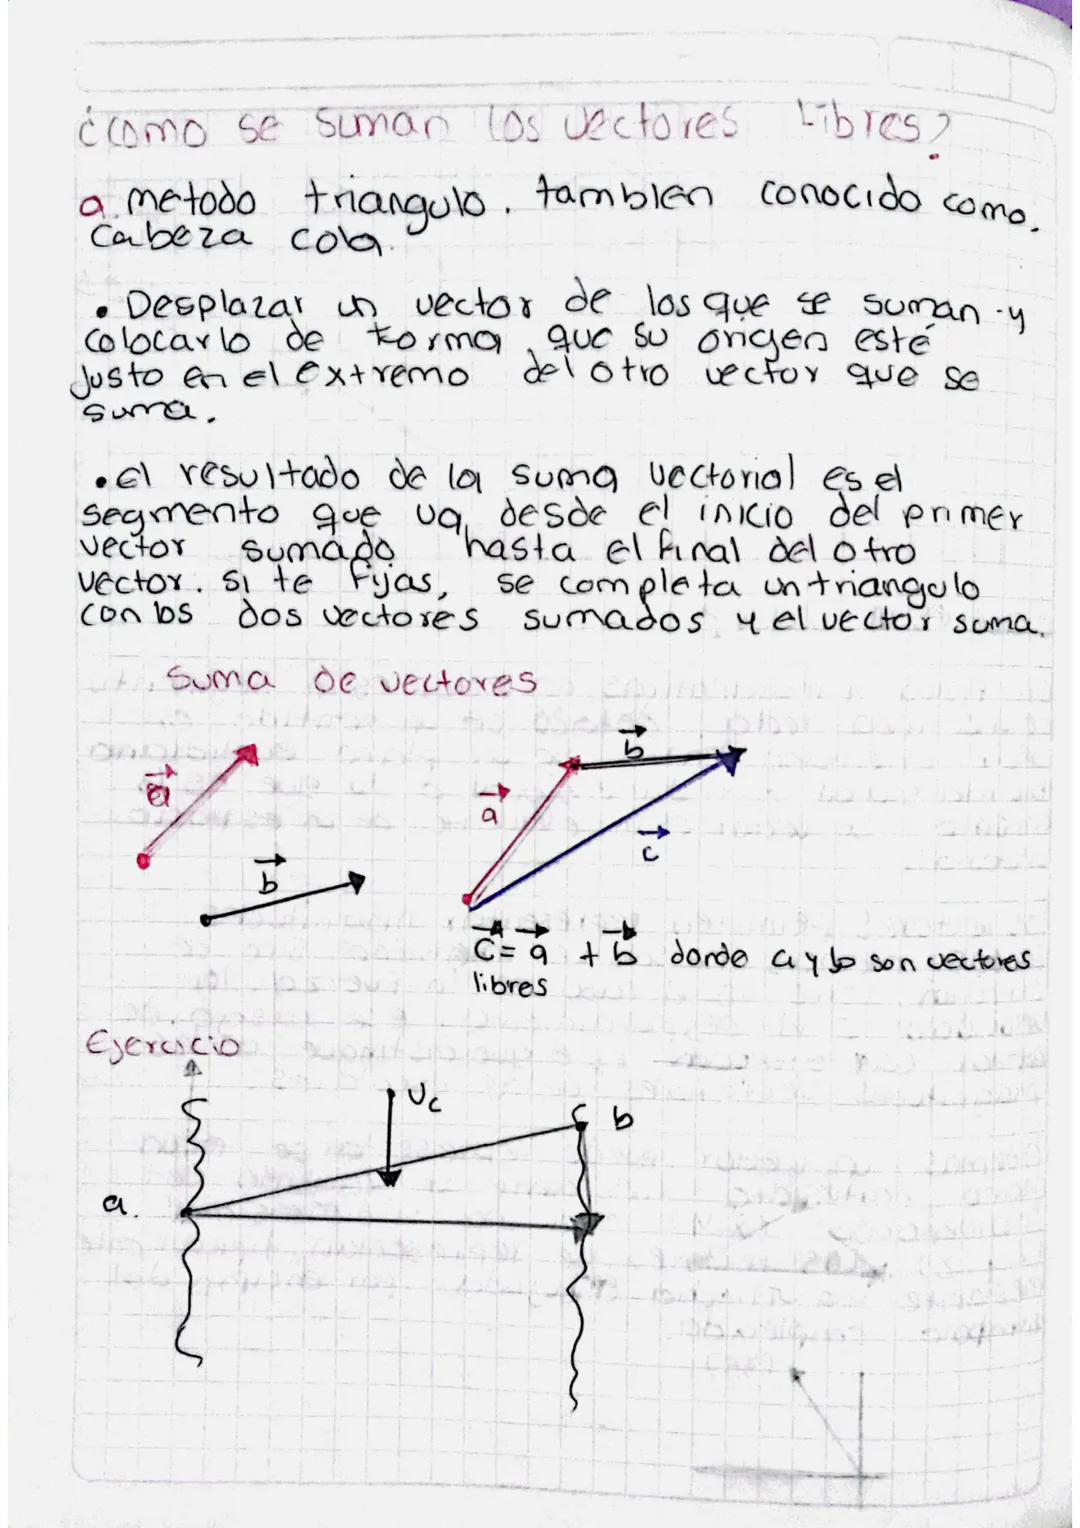 ¿como se suman los vectores Libres?
a. metodo triangulo. tambien conocido como.
Cabeza cola.
• Desplazar un vector de los que se suman y
colocarlo de forma que su origen esté
Justo en el extremo del otro vector que se
suma.
• el resultado de la suma vectorial es el
segmento que va desde el inicio del primer
vector sumado hasta el final del otro
vector. si te fijas, se completa un triangulo
con los dos vectores sumados y el vector suma.
Suma de vectores
a
b
a
b
c
C = a + b donde a y b son vectores
libres
Ejercicio
Uc
b
a.